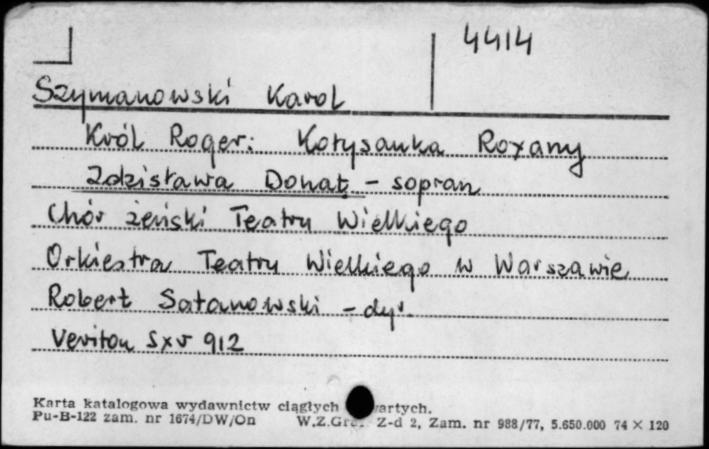 4414
Szymanowski Karol
Król Roger: Kołysanka Roxany
Zdzisława Donat – sopran
Chór żeński Teatru Wielkiego
Orkiestra Teatru Wielkiego w Warszawie
Robert Satanowski – dyr.
Veriton sxv 912
Karta katalogowa wydawnictw ciągłych
Pu-B-122 zam. nr 1674/DW/On W.Z.Graf. Z-d 2, Zam. nr 988/77, 5.650.000 74 × 120